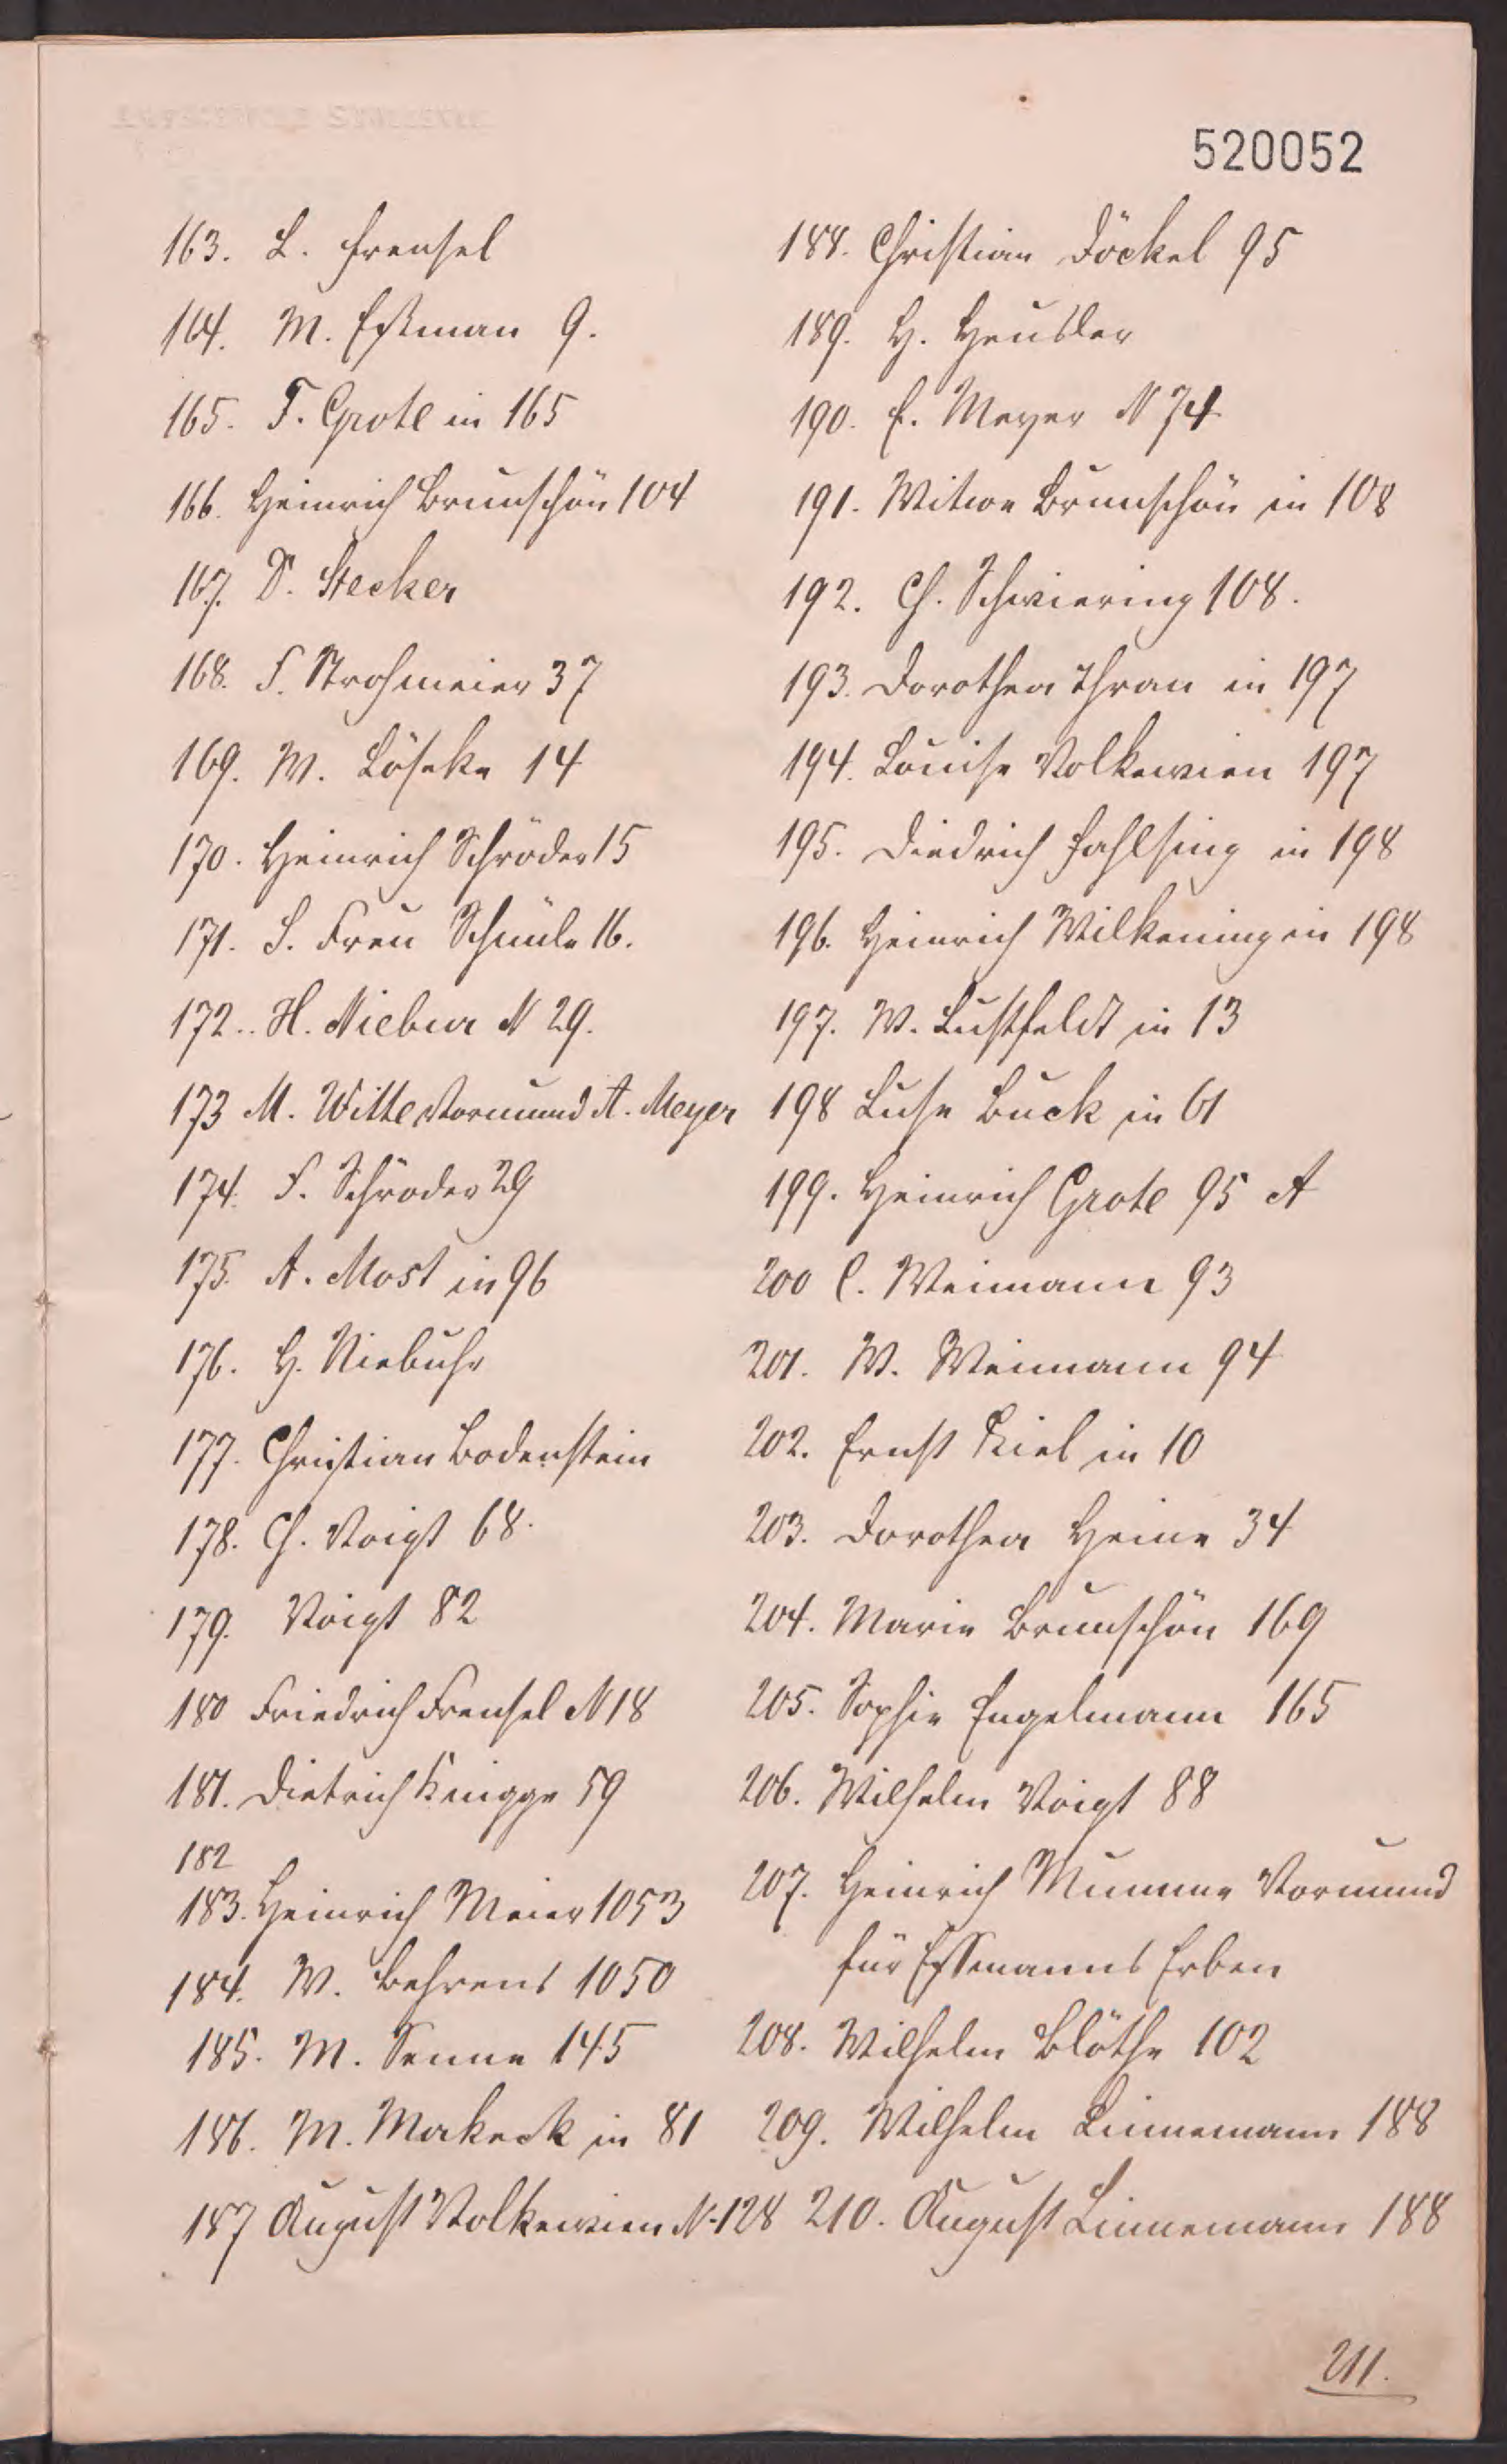 520052
163. L. Frensel
164. M. Eßman 9.
165. F. Grote in 165
166. Heinrich Brunschön 104
167. D. Stecker
168. F. Strohmeier 37
169. W. Löseke 14
170. Heinrich Schröder 15
171. S. Frau 16.
172.. H. Niebur N 29.
173 M. Witte Vormund A. Meyer
174. F. Schröder 29
175. A. Most in 96
176. H. Niebuhr
177. Christian Bodenstein
178. Ch. Voigt 68.
179. Voigt 82
180 Friedrich Frensel N 18
181. Dietrich Knigge 59
182
183. Heinrich Meier 1053
184. W. Behrens 1050
185. M. Senne 145
186. M. Makeck in 81
187 August Volkewien N-128
188. Christian Döckel 95
189. H. Heusler
190. E. Meyer N 74
191. Witwe Brunschön in 108
192. Ch. Schwiering 108.
193. Dorothea Thran in 197
194. Louise Volkewien 197
195. Diedrich Fahlsing in 198
196. Heinrich Wilkening in 198
197. W. Lustfeldt in 13
198 Luse Buck in 61
199. Heinrich Grote 95 A
200 C. Weimann 93
201. W. Weimann 94
202. Ernst Kiel in 10
203. Dorothea Heine 34
204. Marie Brunschön 169
205. Sophie Engelmann 165
206. Wilhelm Voigt 88
207. Heinrich Mumme Vormund
für Essmanns Erben
208. Wilhelm Blöthe 102
209. Wilhelm Linnemann 188
210. August Linnemann 188
211.